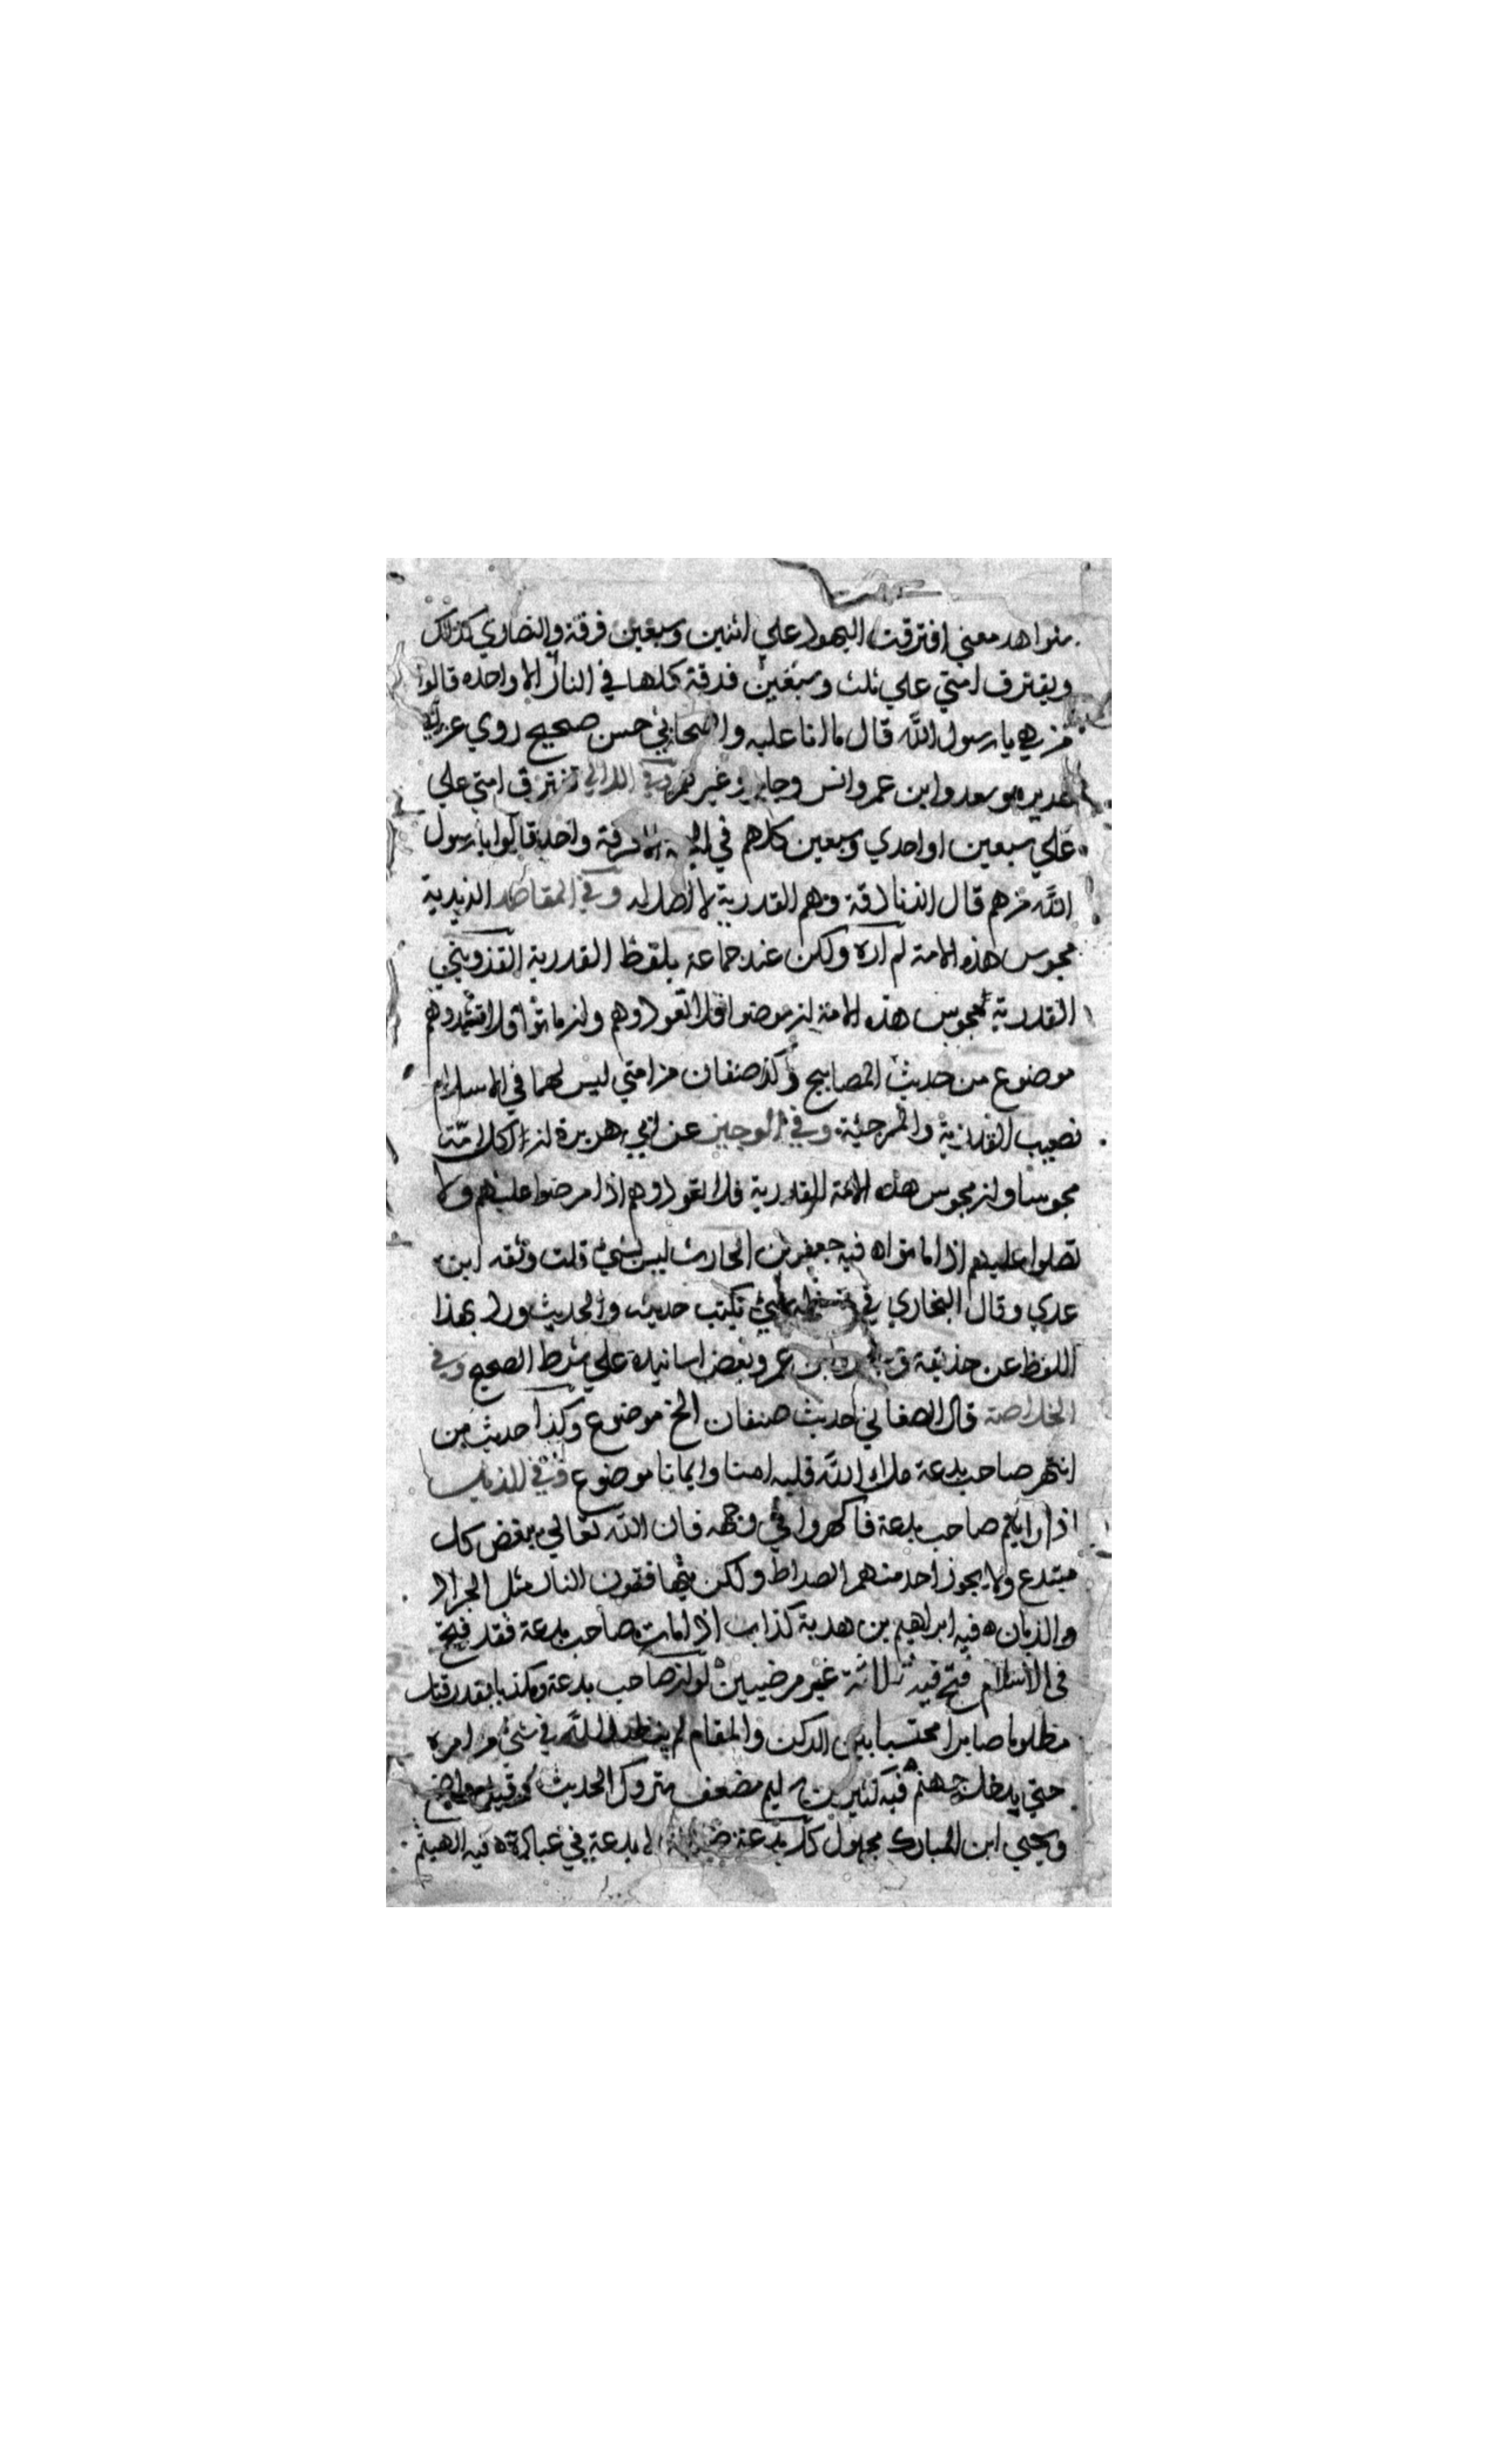 شواهد معني افترقت اليهود علي اثنين وسبعين فرقة والنصاري كذلك
ويفترق امتي علي ثلث وسبعين فرقة كلها في النار الا واحده قالوا
من هي يا رسول الله قال ما انا عليه واصحابي حسن صحيح روي عن ابي
هريره وسعد وابن عمر وانس وجابر وغيرهم وفي اللالي تفترق امتي علي
علي سبعين او احدي وسبعين كلهم في الجنة الا فرقة واحدة قالوا يا رسول
الله من هم قال الزنادقة وهم القدرية لا اصل له وفي المقاصد الزيدية
مجوس هذه الامة لم اره ولكن عند جماعة بلفظ القدرية القزويني
القدرية مجوس هذه الامة ان مرضوا فلا تعودوهم وان ماتوا فلا تشهدوهم
موضوع من حديث المصابيح وكذ صنفان من امتي ليس لهما في الاسلام
نصيب القدرية والمرجئة وفي الوجيز عن ابي هريرة ان لكل امة
مجوسا وان مجوس هذه الامة القدرية فلا تعودوهم اذا مرضوا عليهم ولا
تصلوا عليهم اذا ماتوا ه فيه جعفر بن الحارث ليس بشي قلت وثقه ابن
عدي وقال البخاري في حفظه شي يكتب حديثه والحديث ورد بهذا
اللفظ عن حذيفة وابن عمر وبعض اسانيده علي شرط الصحيح وفي
الخلاصة قال الصغاني حديث صنفان الخ موضوع وكذا حديث من
انتهر صاحب بدعة ملاء الله قلبه امنا وايمانا موضوع وفي الذيل
اذا رايتم صاحب بدعة فاكهروا في وجهه فان الله تعالي يبغض كل
مبتدع ولا يجوز احد منهم الصراط ولكن يتهافتون النار مثل الجراد
والذبان ه فيه ابراهيم بن هدبة كذاب اذا مات صاحب بدعة فقد فتح
في الاسلام فتح فيه ثلاثة غير مرضيين لو ان صاحب بدعة ومكذبا بقدر قتل
مظلوما صابرا محتسبا بين الركن والمقام لم ينظر الله في شي من امره
حتي يدخله جهنم فيه كثير بن سليم مضعف متروك الحديث
ويحيي ابن المبارك مجهول كل بدعة ضلالة الا بدعة في عبادة ه فيه الهيثم